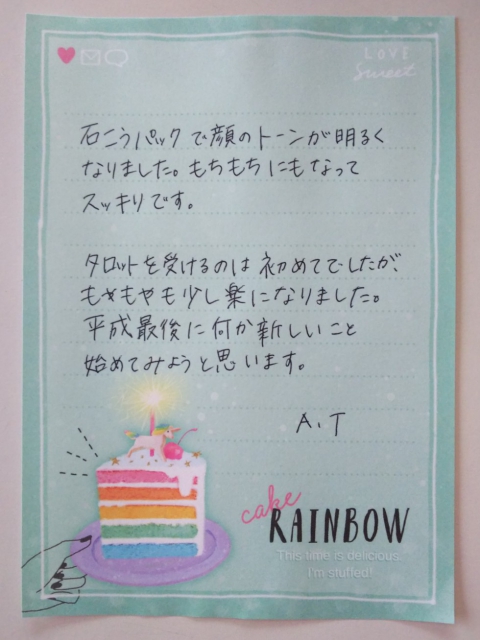 LOVE
Sweet
石こうパックで顔のトーンが明るく
なりました。もちもちにもなって
スッキリです。
タロットを受けるのは初めてでしたが、
もやもやも少し楽になりました。
平成最後に何か新しいこと
始めてみようと思います。
A.T
cake
RAINBOW
This time is delicious.
I'm stuffed!